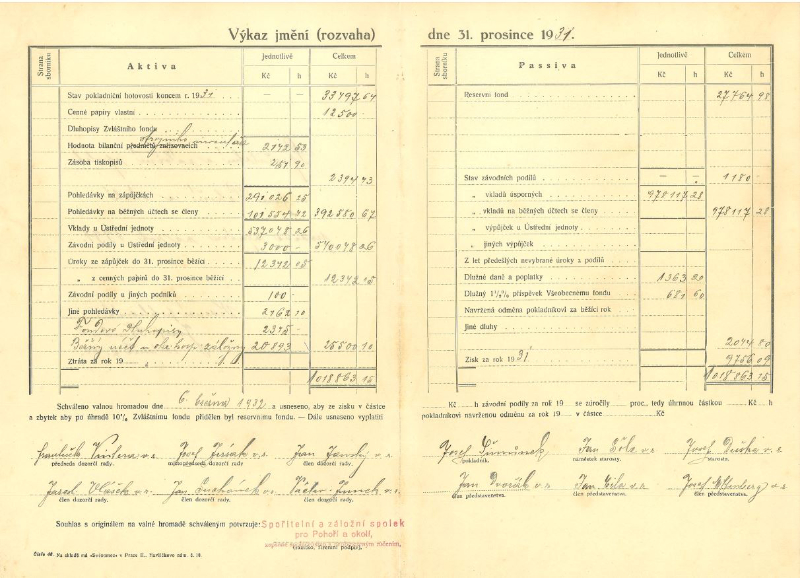 Výkaz jmění (rozvaha)
Strana sborníku
Aktiva
Jednotlivě
Celkem
Kč h Kč h
Stav pokladniční hotovosti koncem r. 1931 — — 33497 64
Cenné papíry vlastní 12500 —
Dluhopisy Zvláštního fondu
Hodnota bilanční předmětů zařizovacích 2142 53
Zásoba tiskopisů 251 90
2394 43
Pohledávky na zápůjčkách
Pohledávky na běžných účtech se členy 392580 67
Vklady u Ústřední jednoty 537048 26
Závodní podíly u Ústřední jednoty 3000 — 540048 26
Úroky ze zápůjček do 31. prosince běžící 12342 05
„ z cenných papírů do 31. prosince běžící 12342 05
Závodní podíly u jiných podniků 100 —
Jiné pohledávky 2162 10
Fondové dluhopisy 2345 —
20893 — 25500 10
Ztráta za rok 19
1018863 15
dne 31. prosince 1931.
Strana sborníku
Passiva
Jednotlivě
Celkem
Kč h Kč h
Reservní fond 27764 98
Stav závodních podílů — — 1180 —
„ vkladů úsporných 978117 28
„ vkladů na běžných účtech se členy 978117 28
„ výpůjček u Ústřední jednoty
„ jiných výpůjček
Z let předešlých nevybrané úroky z podílů
Dlužné daně a poplatky 1363 20
Dlužný 1½% příspěvek Všeobecnému fondu 681 60
Navržená odměna pokladníkovi za běžící rok
Jiné dluhy
2044 80
Zisk za rok 1931 9756 09
1018863 15
Schváleno valnou hromadou dne 6. března 1932 a usneseno, aby ze zisku v částce
a zbytek aby po úhradě 10% Zvláštnímu fondu přidělen byl reservnímu fondu. — Dále usneseno vyplatiti
Kč h závodní podíly za rok 19 se zúročily proc., tedy úhrnnou částkou Kč h
pokladníkovi navrženou odměnu za rok 19 v částce Kč
předseda dozorčí rady.
místopředseda dozorčí rady.
Jan
člen dozorčí rady.
Josef
pokladník.
Jan
náměstek starosty.
Josef
starosta.
člen dozorčí rady.
Jan
člen dozorčí rady.
Václav
člen dozorčí rady.
Jan Dvořák v. r.
člen představenstva.
Jan
člen představenstva.
Josef
člen představenstva.
Souhlas s originálem na valné hromadě schváleným potvrzuje:
Spořitelní a záložní spolek
pro Pohoří a okolí,
Číslo 46.